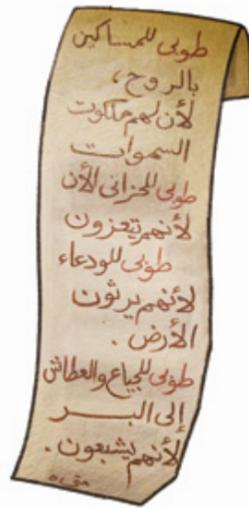 طوبى للمساكين
بالروح،
لأن لهم ملكوت
السموات
طوبى للحزانى الأن
لأنهم يتعزون
طوبى للودعاء
لأنهم يرثون
الأرض.
طوبى للجياع والعطاش
إلى البــر
لأنهم يشبعون.
متى ٥